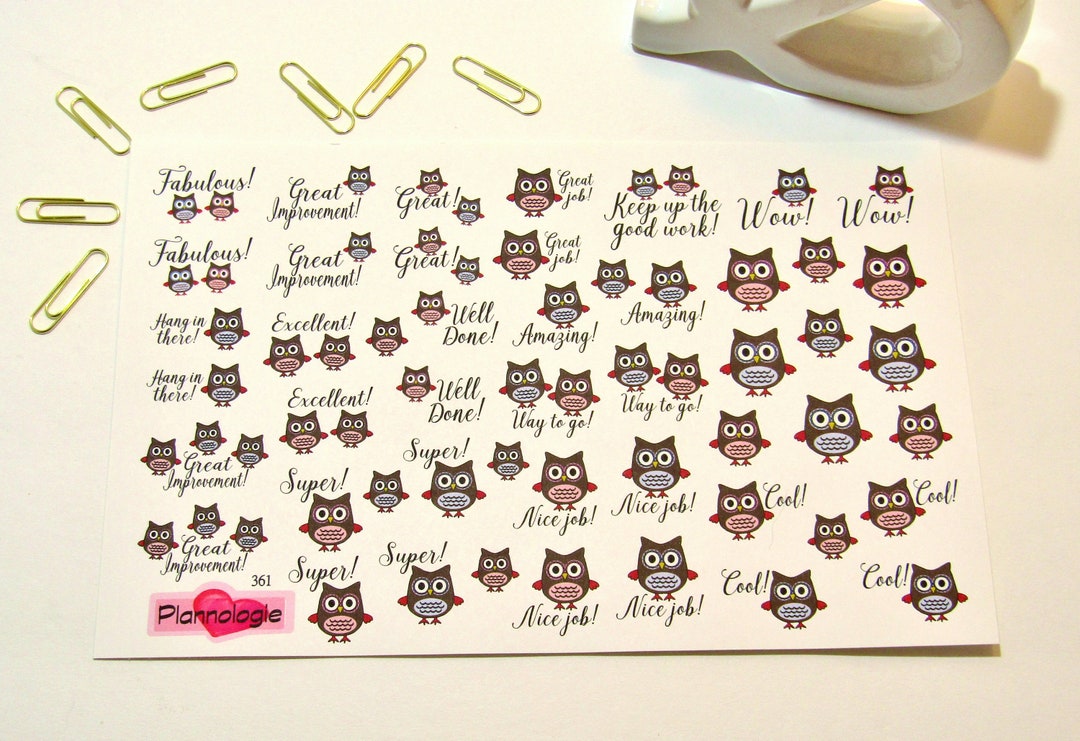 Fabulous!
Great
Improvement!
Great!
Great
job!
Keep up the
good work!
Wow!
Wow!
Fabulous!
Great
Improvement!
Great!
Great
job!
Hang in
there!
Excellent!
Well
Done!
Amazing!
Amazing!
Hang in
there!
Excellent!
Well
Done!
Way to go!
Way to go!
Great
Improvement!
Super!
Super!
Nice job!
Nice job!
Cool!
Cool!
Great
Improvement!
Super!
Super!
Nice job!
Nice job!
Cool!
Cool!
361
Plannologie